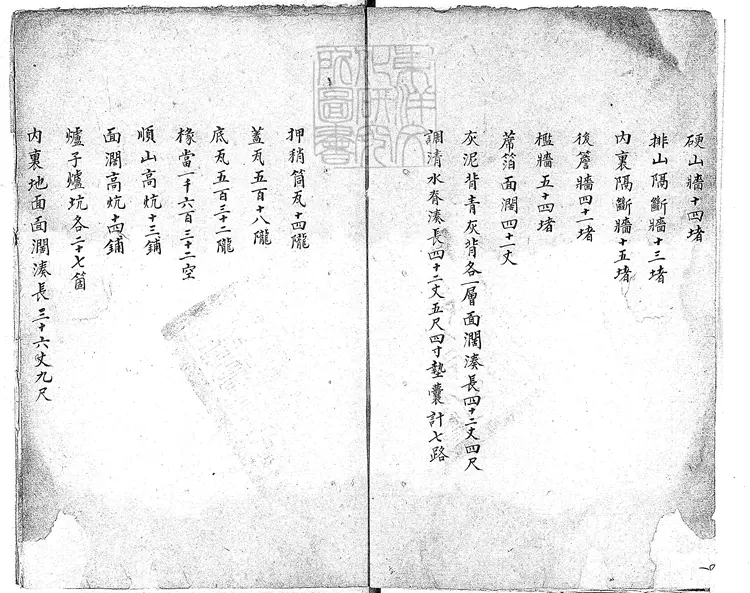 硬山牆十四堵
排山隔斷牆十三堵
內裏隔斷牆十五堵
後簷牆四十一堵
檻牆五十四堵
蓆箔面濶四十一丈
灰泥背青灰背各一層面濶湊長四十二丈四尺
調清水脊湊長四十二丈五尺四寸墊囊計七路
押稍筒瓦十四隴
蓋瓦五百十八隴
底瓦五百三十二隴
椽當一千六百三十二空
順山高炕十三鋪
面濶高炕十四鋪
爐子爐坑各二十七箇
內裏地面面濶湊長三十六丈九尺